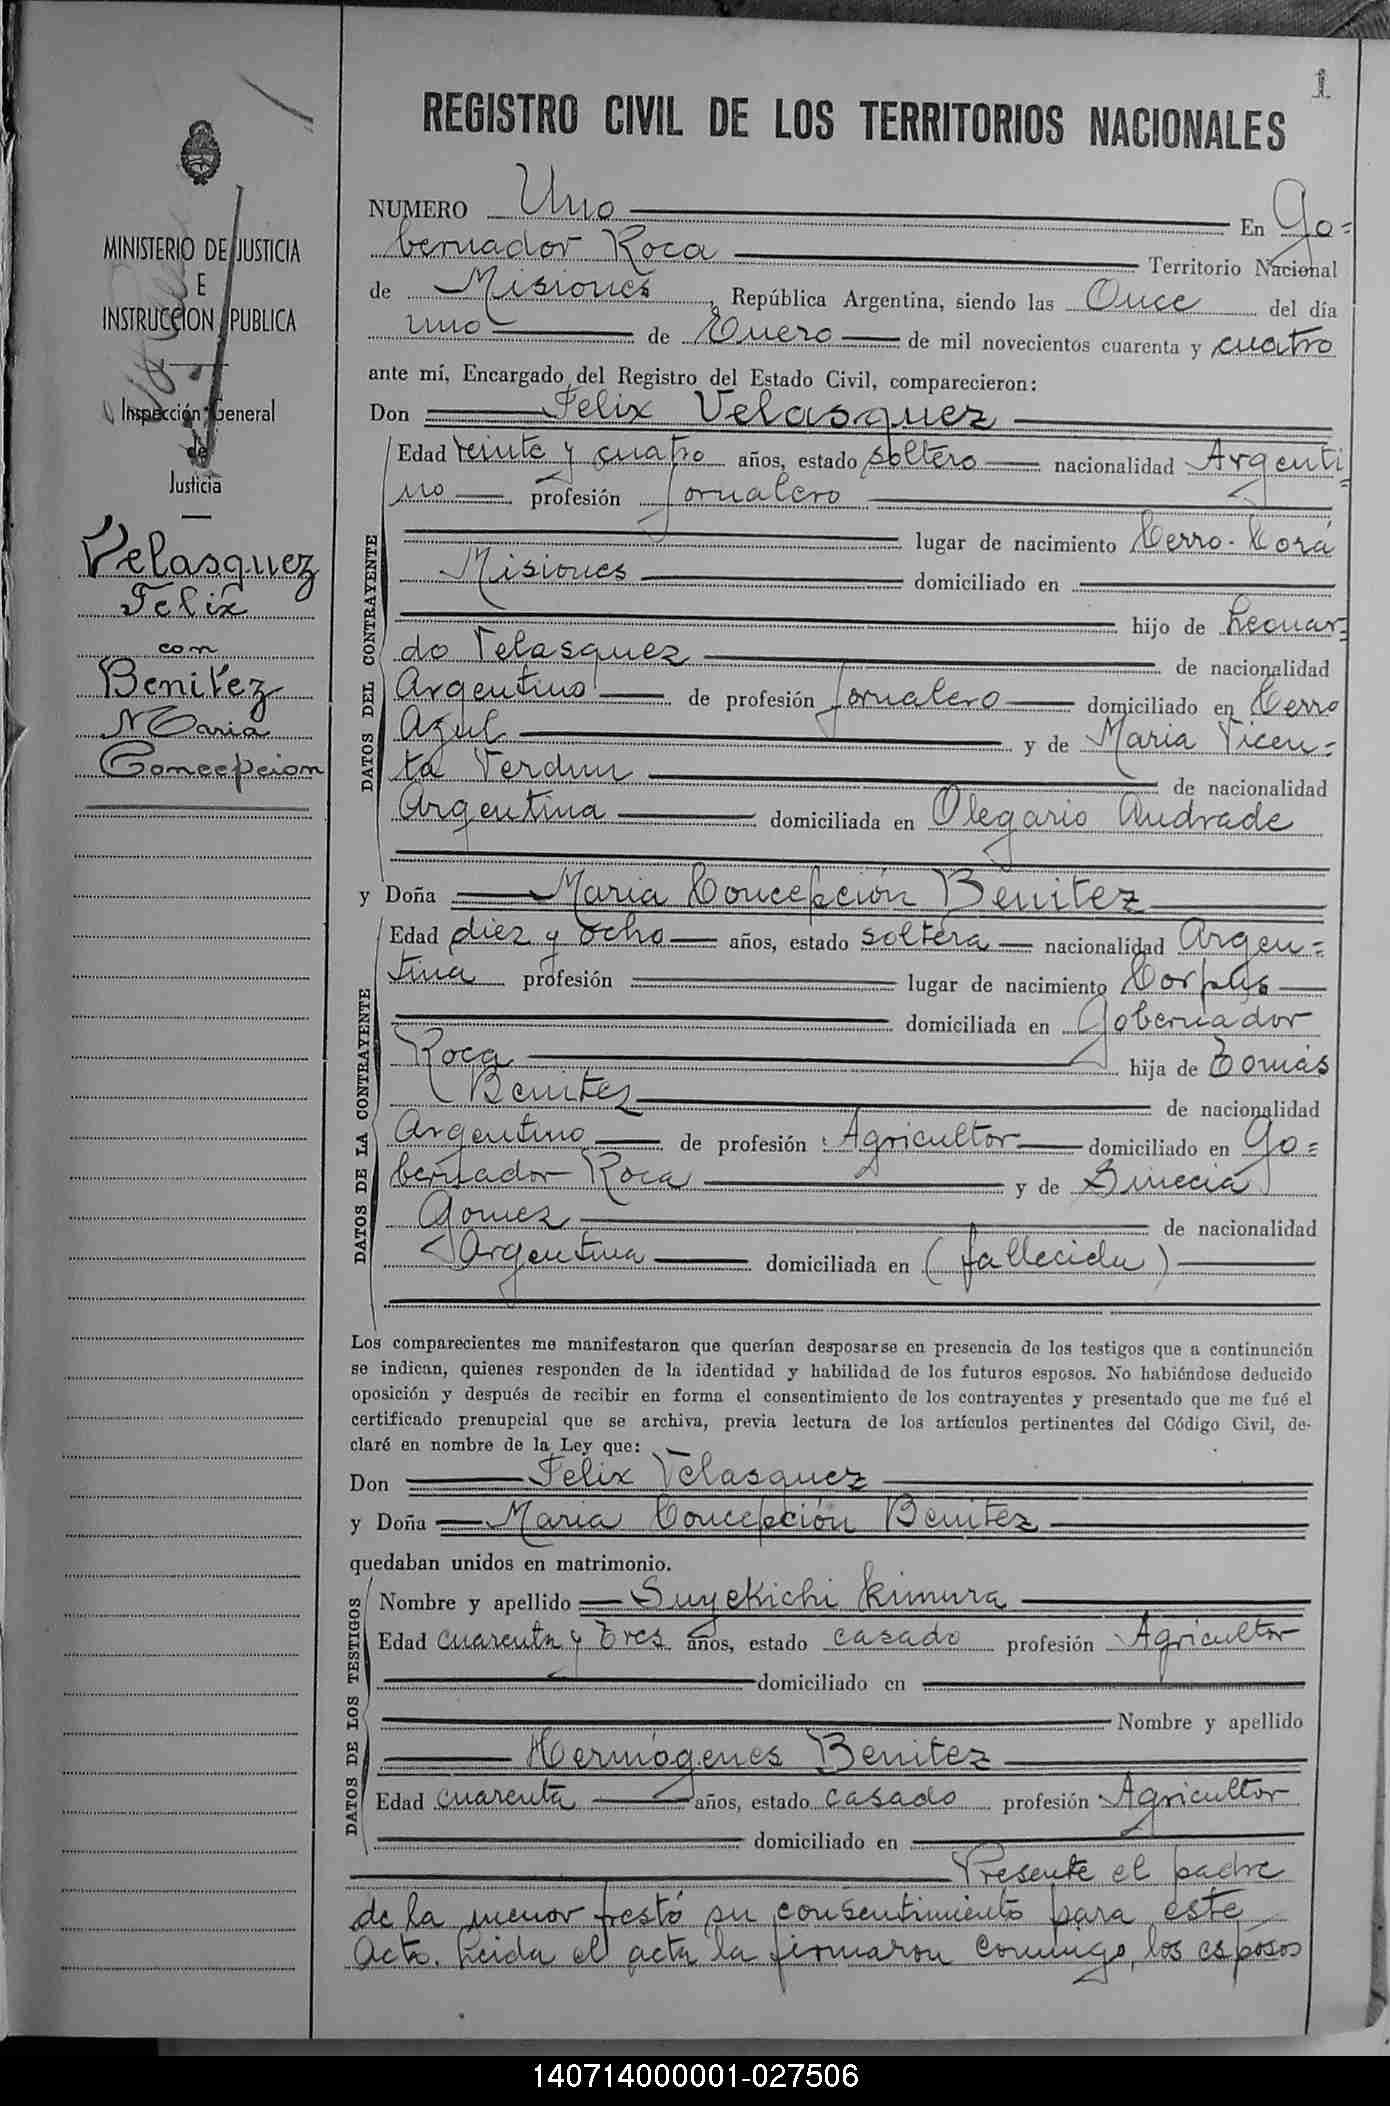 1
REGISTRO CIVIL DE LOS TERRITORIOS NACIONALES
MINISTERIO DE JUSTICIA
E
INSTRUCCION PUBLICA
Inspección General
de
Justicia
Velasquez
Felix
con
Benitez
Maria
Concepcion
NUMERO Uno En Go=
bernador Roca Territorio Nacional
de Misiones, República Argentina, siendo las Once del día
uno de Enero de mil novecientos cuarenta y cuatro
ante mí, Encargado del Registro del Estado Civil, comparecieron:
Don Felix Velasquez
DATOS DEL CONTRAYENTE
Edad veinte y cuatro años, estado soltero nacionalidad Argenti=
no profesión Jornalero
lugar de nacimiento Cerro-Corá
Misiones domiciliado en
hijo de Leonar=
do Velasquez de nacionalidad
Argentino de profesión Jornalero domiciliado en Cerro
Azul y de Maria Vicen=
ta Verdun de nacionalidad
Argentina domiciliada en Olegario Andrade
y Doña Maria Concepción Benitez
DATOS DE LA CONTRAYENTE
Edad diez y ocho años, estado soltera nacionalidad Argen=
tina profesión lugar de nacimiento Corpus
domiciliada en Gobernador
Roca hija de Tomás
Benitez de nacionalidad
Argentino de profesión Agricultor domiciliado en Go=
bernador Roca y de
Gomez de nacionalidad
Argentina domiciliada en (fallecida)
Los comparecientes me manifestaron que querían desposarse en presencia de los testigos que a continuación
se indican, quienes responden de la identidad y habilidad de los futuros esposos. No habiéndose deducido
oposición y después de recibir en forma el consentimiento de los contrayentes y presentado que me fué el
certificado prenupcial que se archiva, previa lectura de los artículos pertinentes del Código Civil, de-
claré en nombre de la Ley que:
Don Felix Velasquez
y Doña Maria Concepción Benitez
quedaban unidos en matrimonio.
DATOS DE LOS TESTIGOS
Nombre y apellido Suyekichi Kimura
Edad cuarenta y tres años, estado casado profesión Agricultor
domiciliado en
Nombre y apellido
Hermógenes Benitez
Edad cuarenta años, estado casado profesión Agricultor
domiciliado en
Presente el padre
de la menor prestó su consentimiento para este
Acto. Leida el acta la firmaron conmigo, los esposos
140714000001-027506